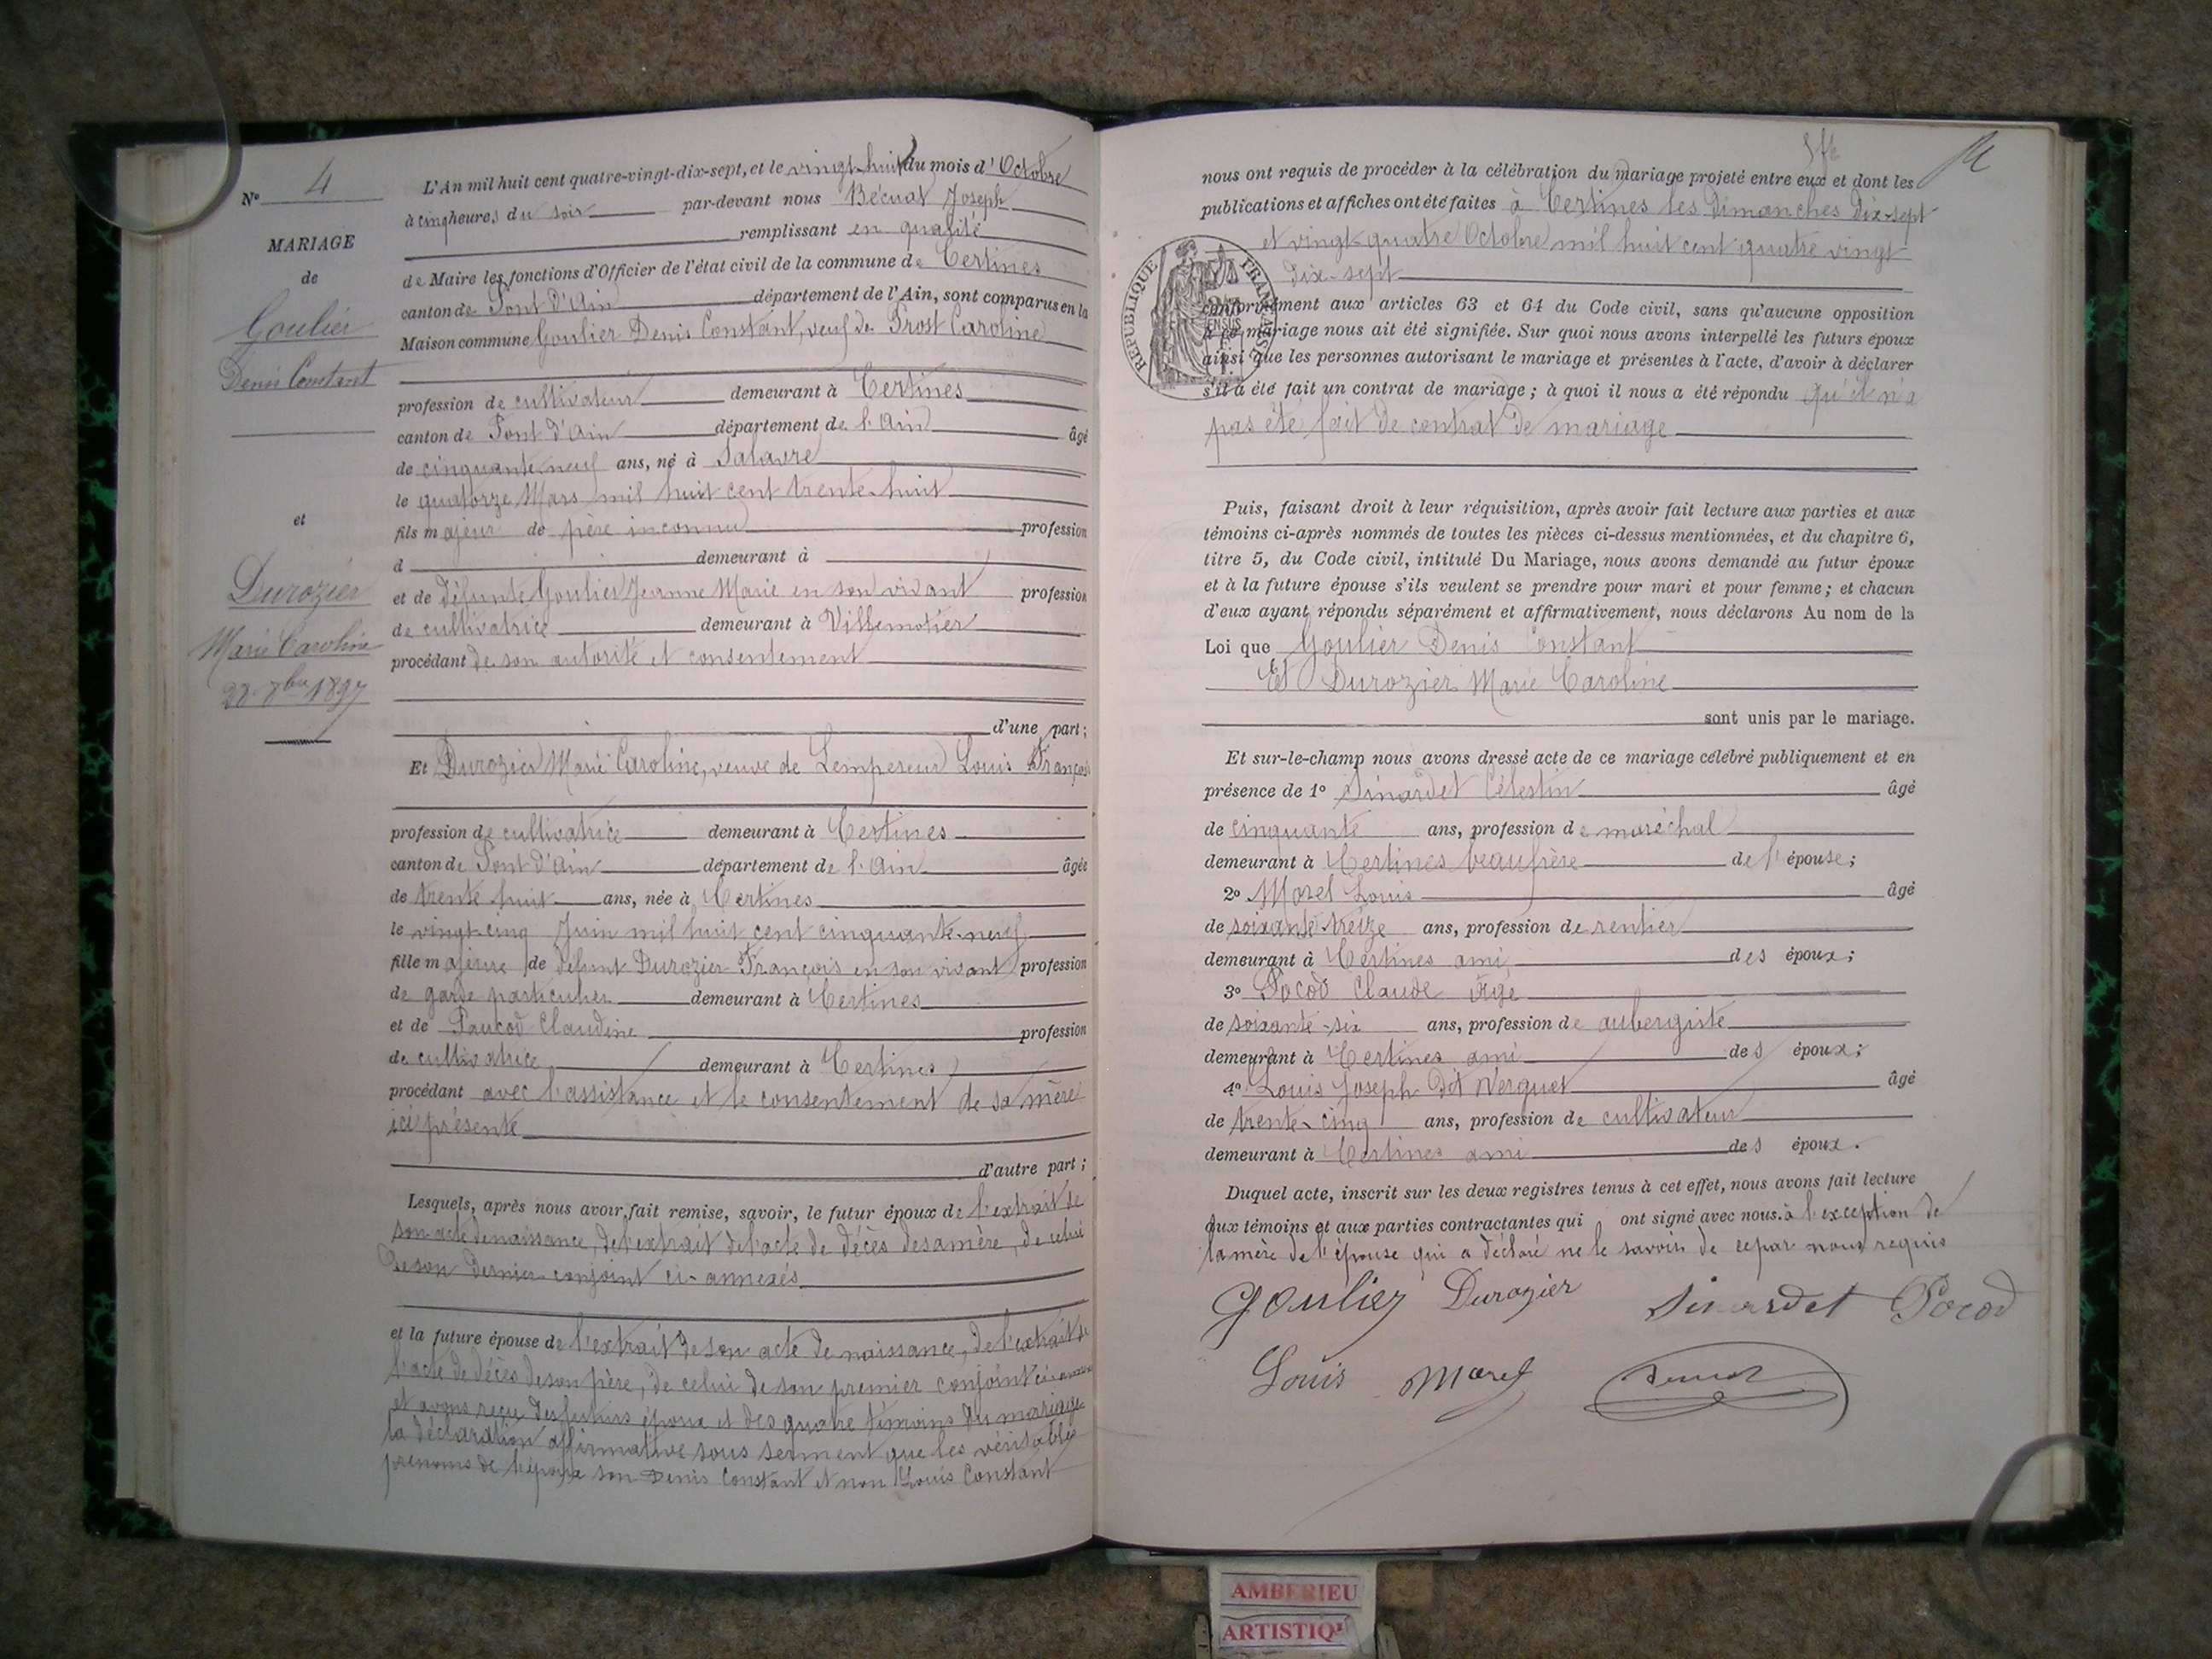 Nº 4
MARIAGE
de
Goulier
Denis Constant
et
Durozier
Marie Caroline
28 8bre 1897
L'An mil huit cent quatre-vingt-dix-sept, et le vingt-huit du mois d'Octobre
à cinq heures du soir par-devant nous Bécuat Joseph
remplissant en qualité
de Maire les fonctions d'Officier de l'état civil de la commune de Certines
canton de Pont d'Ain département de l'Ain, sont comparus en la
Maison commune Goulier Denis Constant, veuf de Prost Caroline
profession de cultivateur demeurant à Certines
canton de Pont d'Ain département de l'Ain âgé
de cinquante-neuf ans, né à Salavre
le quatorze Mars mil huit cent trente-huit
fils majeur de père inconnu profession
d demeurant à
et de défunte Goulier Jeanne Marie en son vivant profession
de cultivatrice demeurant à Villemotier
procédant de son autorité et consentement
d'une part;
Et Durozier Marie Caroline, veuve de Lempereur Louis François
profession de cultivatrice demeurant à Certines
canton de Pont d'Ain département de l'Ain âgée
de trente huit ans, née à Certines
le vingt-cinq Juin mil huit cent cinquante-neuf
fille majeure de défunt Durozier François en son vivant profession
de garde particulier demeurant à Certines
et de Paucod Claudine profession
de cultivatrice demeurant à Certines
procédant avec l'assistance et le consentement de sa mère
ici présente
d'autre part;
Lesquels, après nous avoir fait remise, savoir, le futur époux de l'extrait de
son acte de naissance, de l'extrait de l'acte de décès de sa mère, de celui
de son dernier conjoint ci-annexés
et la future épouse de l'extrait de son acte de naissance, de l'extrait de
l'acte de décès de son père, de celui de son premier conjoint
et avons reçu des futurs époux et des quatre témoins du mariage
la déclaration affirmative sous serment que les véritables
prénoms de l'époux son Denis Constant et non Louis Constant
nous ont requis de procéder à la célébration du mariage projeté entre eux et dont les
publications et affiches ont été faites à Certines les Dimanches Dix-sept
et vingt-quatre Octobre mil huit cent quatre vingt
dix-sept
RÉPUBLIQUE FRANÇAISE
conformément aux articles 63 et 64 du Code civil, sans qu'aucune opposition
à ce mariage nous ait été signifiée. Sur quoi nous avons interpellé les futurs époux
ainsi que les personnes autorisant le mariage et présentes à l'acte, d'avoir à déclarer
s'il a été fait un contrat de mariage; à quoi il nous a été répondu qu'il n'a
pas été fait de contrat de mariage
Puis, faisant droit à leur réquisition, après avoir fait lecture aux parties et aux
témoins ci-après nommés de toutes les pièces ci-dessus mentionnées, et du chapitre 6,
titre 5, du Code civil, intitulé Du Mariage, nous avons demandé au futur époux
et à la future épouse s'ils veulent se prendre pour mari et pour femme; et chacun
d'eux ayant répondu séparément et affirmativement, nous déclarons Au nom de la
Loi que Goulier Denis Constant
Et Durozier Marie Caroline
sont unis par le mariage.
Et sur-le-champ nous avons dressé acte de ce mariage célébré publiquement et en
présence de 1º Sinardet Célestin âgé
de cinquante ans, profession de maréchal
demeurant à Certines beaufrère de l'épouse;
2º Morel Louis âgé
de soixante-treize ans, profession de rentier
demeurant à Certines ami des époux;
3º Pocod Claude âge
de soixante-six ans, profession de aubergiste
demeurant à Certines ami des époux;
4º Louis Joseph dit Verguet âgé
de trente-cinq ans, profession de cultivateur
demeurant à Certines ami des époux.
Duquel acte, inscrit sur les deux registres tenus à cet effet, nous avons fait lecture
aux témoins et aux parties contractantes qui ont signé avec nous. à l'exception de
la mère de l'épouse qui a déclaré ne le savoir de ce par nous requis
Goulier Durozier Sinardet Pocod
Louis Morel
AMBERIEU
ARTISTIQ